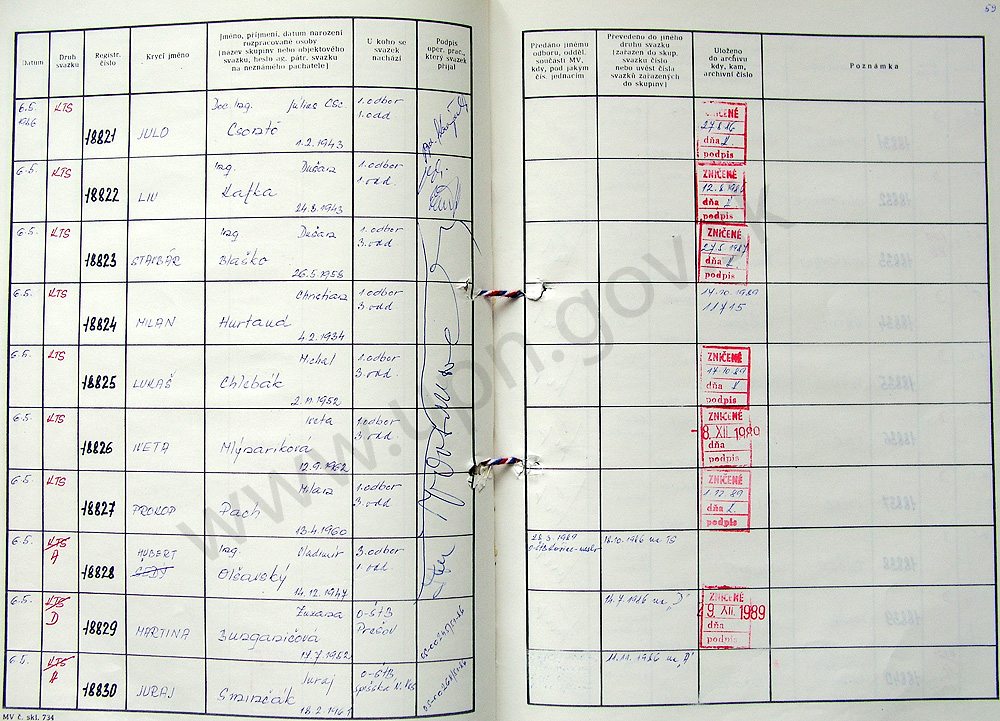 59
Datum
Druh
svazku
Registr.
číslo
Krycí jméno
Jméno, příjmení, datum narození
rozpracované osoby
[název skupiny nebo objektového
svazku, heslo ag. pátr. svazku
na neznámého pachatele]
U koho se
svazek
nachází
Podpis
oper. prac.,
který svazek
přijal
Předáno jinému
odboru, odděl.
součásti MV,
kdy, pod jakým
čís. jednacím
Převedeno do jiného
druhu svazku
[zařazen do skup.
svazku číslo
nebo uvést čísla
svazků zařazených
do skupiny]
Uloženo
do archivu
kdy, kam,
archivní číslo
Poznámka
6.5.
1986
KTS
18821
JULO
Doc Ing. Július CSc.
1.2.1943
1. odbor
1. odd
ZNIČENÉ
dňa
podpis
6.5.
KTS
18822
Ing. Dušan
Kafka
24.8.1943
1. odbor
1. odd.
ZNIČENÉ
dňa
podpis
6.5.
KTS
18823
Ing. Dušan
Blaško
26.5.1958
1. odbor
3. odd
ZNIČENÉ
dňa
podpis
6.5.
KTS
18824
MILAN
Hurtand
4.2.1934
1. odbor
3. odd
17.10.1989
11715
6.5.
KTS
18825
LUKÁŠ
Michal
Chlebák
2.11.1952
1. odbor
3. odd.
ZNIČENÉ
17.10.89
dňa
podpis
6.5.
KTS
18826
IVETA
Iveta
Mlynariková
12.9.1962
1. odbor
3. odd.
ZNIČENÉ
dňa
podpis
6.5.
KTS
18827
PROKOP
Milan
Pach
13.4.1960
1. odbor
3. odd
ZNIČENÉ
1.12.89
dňa
podpis
6.5.
KTS
A
18828
HUBERT
Ing. Vladimír
Olšavský
14.12.1947
3. odbor
1. odd.
28.3.1989
18.10.1986 na TS
6.5.
KTS
D
18829
MARTINA
Zuzana
14.7.1952
O-ŠtB
Prešov
14.7.1986 na "D"
ZNIČENÉ
29. XII. 1989
dňa
podpis
6.5.
KTS
A
18830
JURAJ
Juraj
Sminčák
18.2.1961
O-ŠtB,
Spišská N. Ves
11.11.1986 na "A"
MV č. skl. 734
www.upn.gov.sk